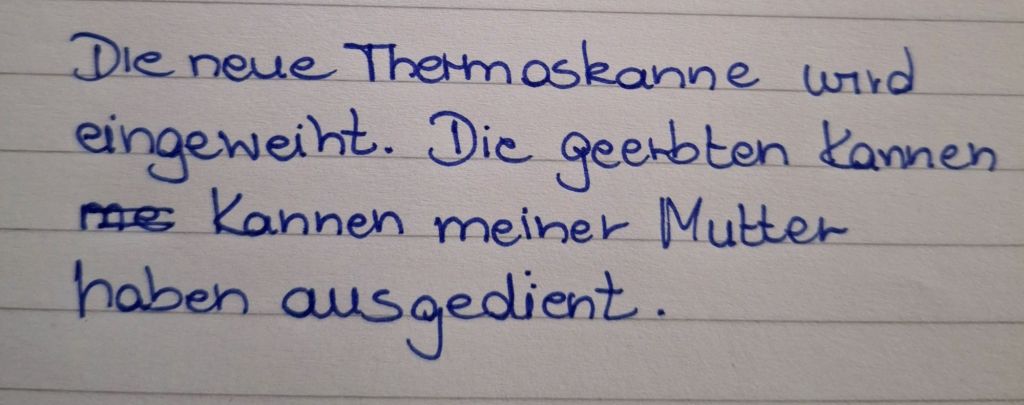 Die neue Thermoskanne wird
eingeweiht. Die geerbten Kannen
me Kannen meiner Mutter
haben ausgedient.